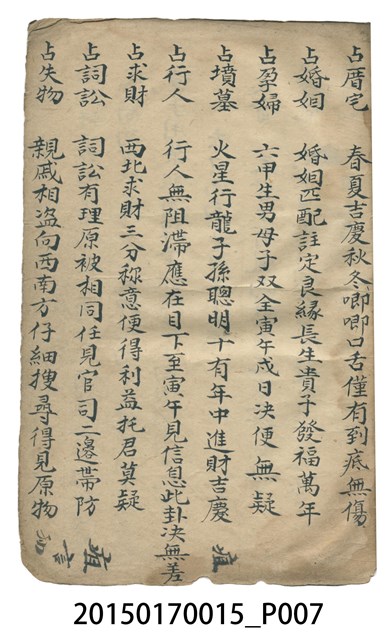 占厝宅 春夏吉慶秋冬唧唧口舌僅有到底無傷
占婚姻 婚姻匹配註定良緣長生貴子發福萬年
占孕婦 六甲生男母子双全寅午戌日決便無疑
占墳墓 火星行龍子孫聰明十有年中進財吉慶
占行人 行人無阻滯應在目下至寅午見信息此卦決無差
占求財 西北求財三分称意便得利益托君莫疑
占詞訟 詞訟有理原被相同任見官司二邊帶防
占失物 親戚相盗向西南方仔細搜尋得見原物
20150170015_P007